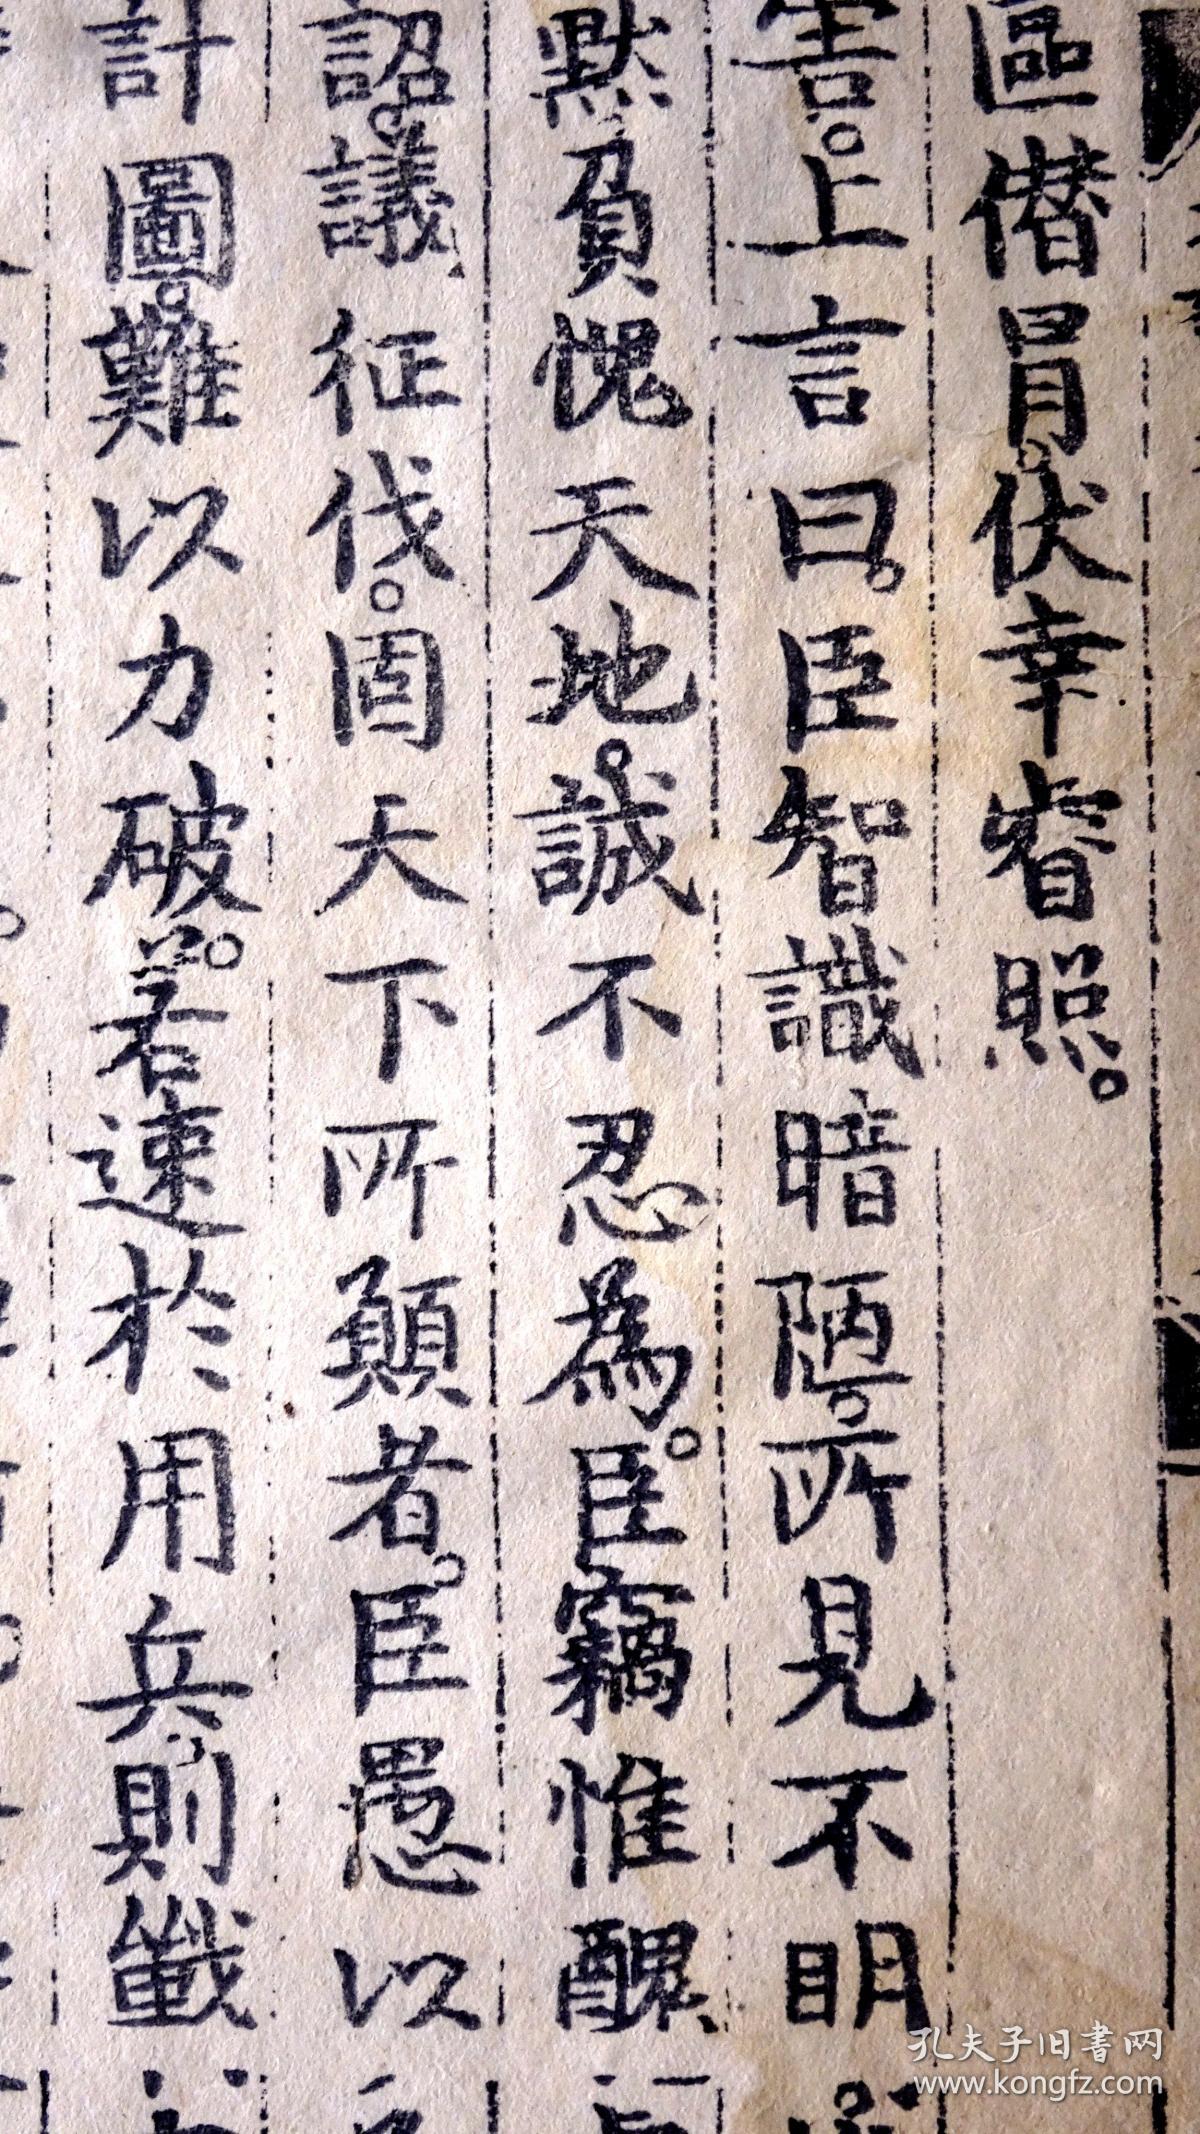 區僣冒。伏幸睿照。
害。上言曰。臣智識暗陋。所見不明
默負愧天地。誠不忍為。臣竊惟醜
詔。議征伐。固天下所願者。臣愚以
計圖。難以力破。若速於用兵。則鑯
孔夫子旧書网
www.kongfz.com